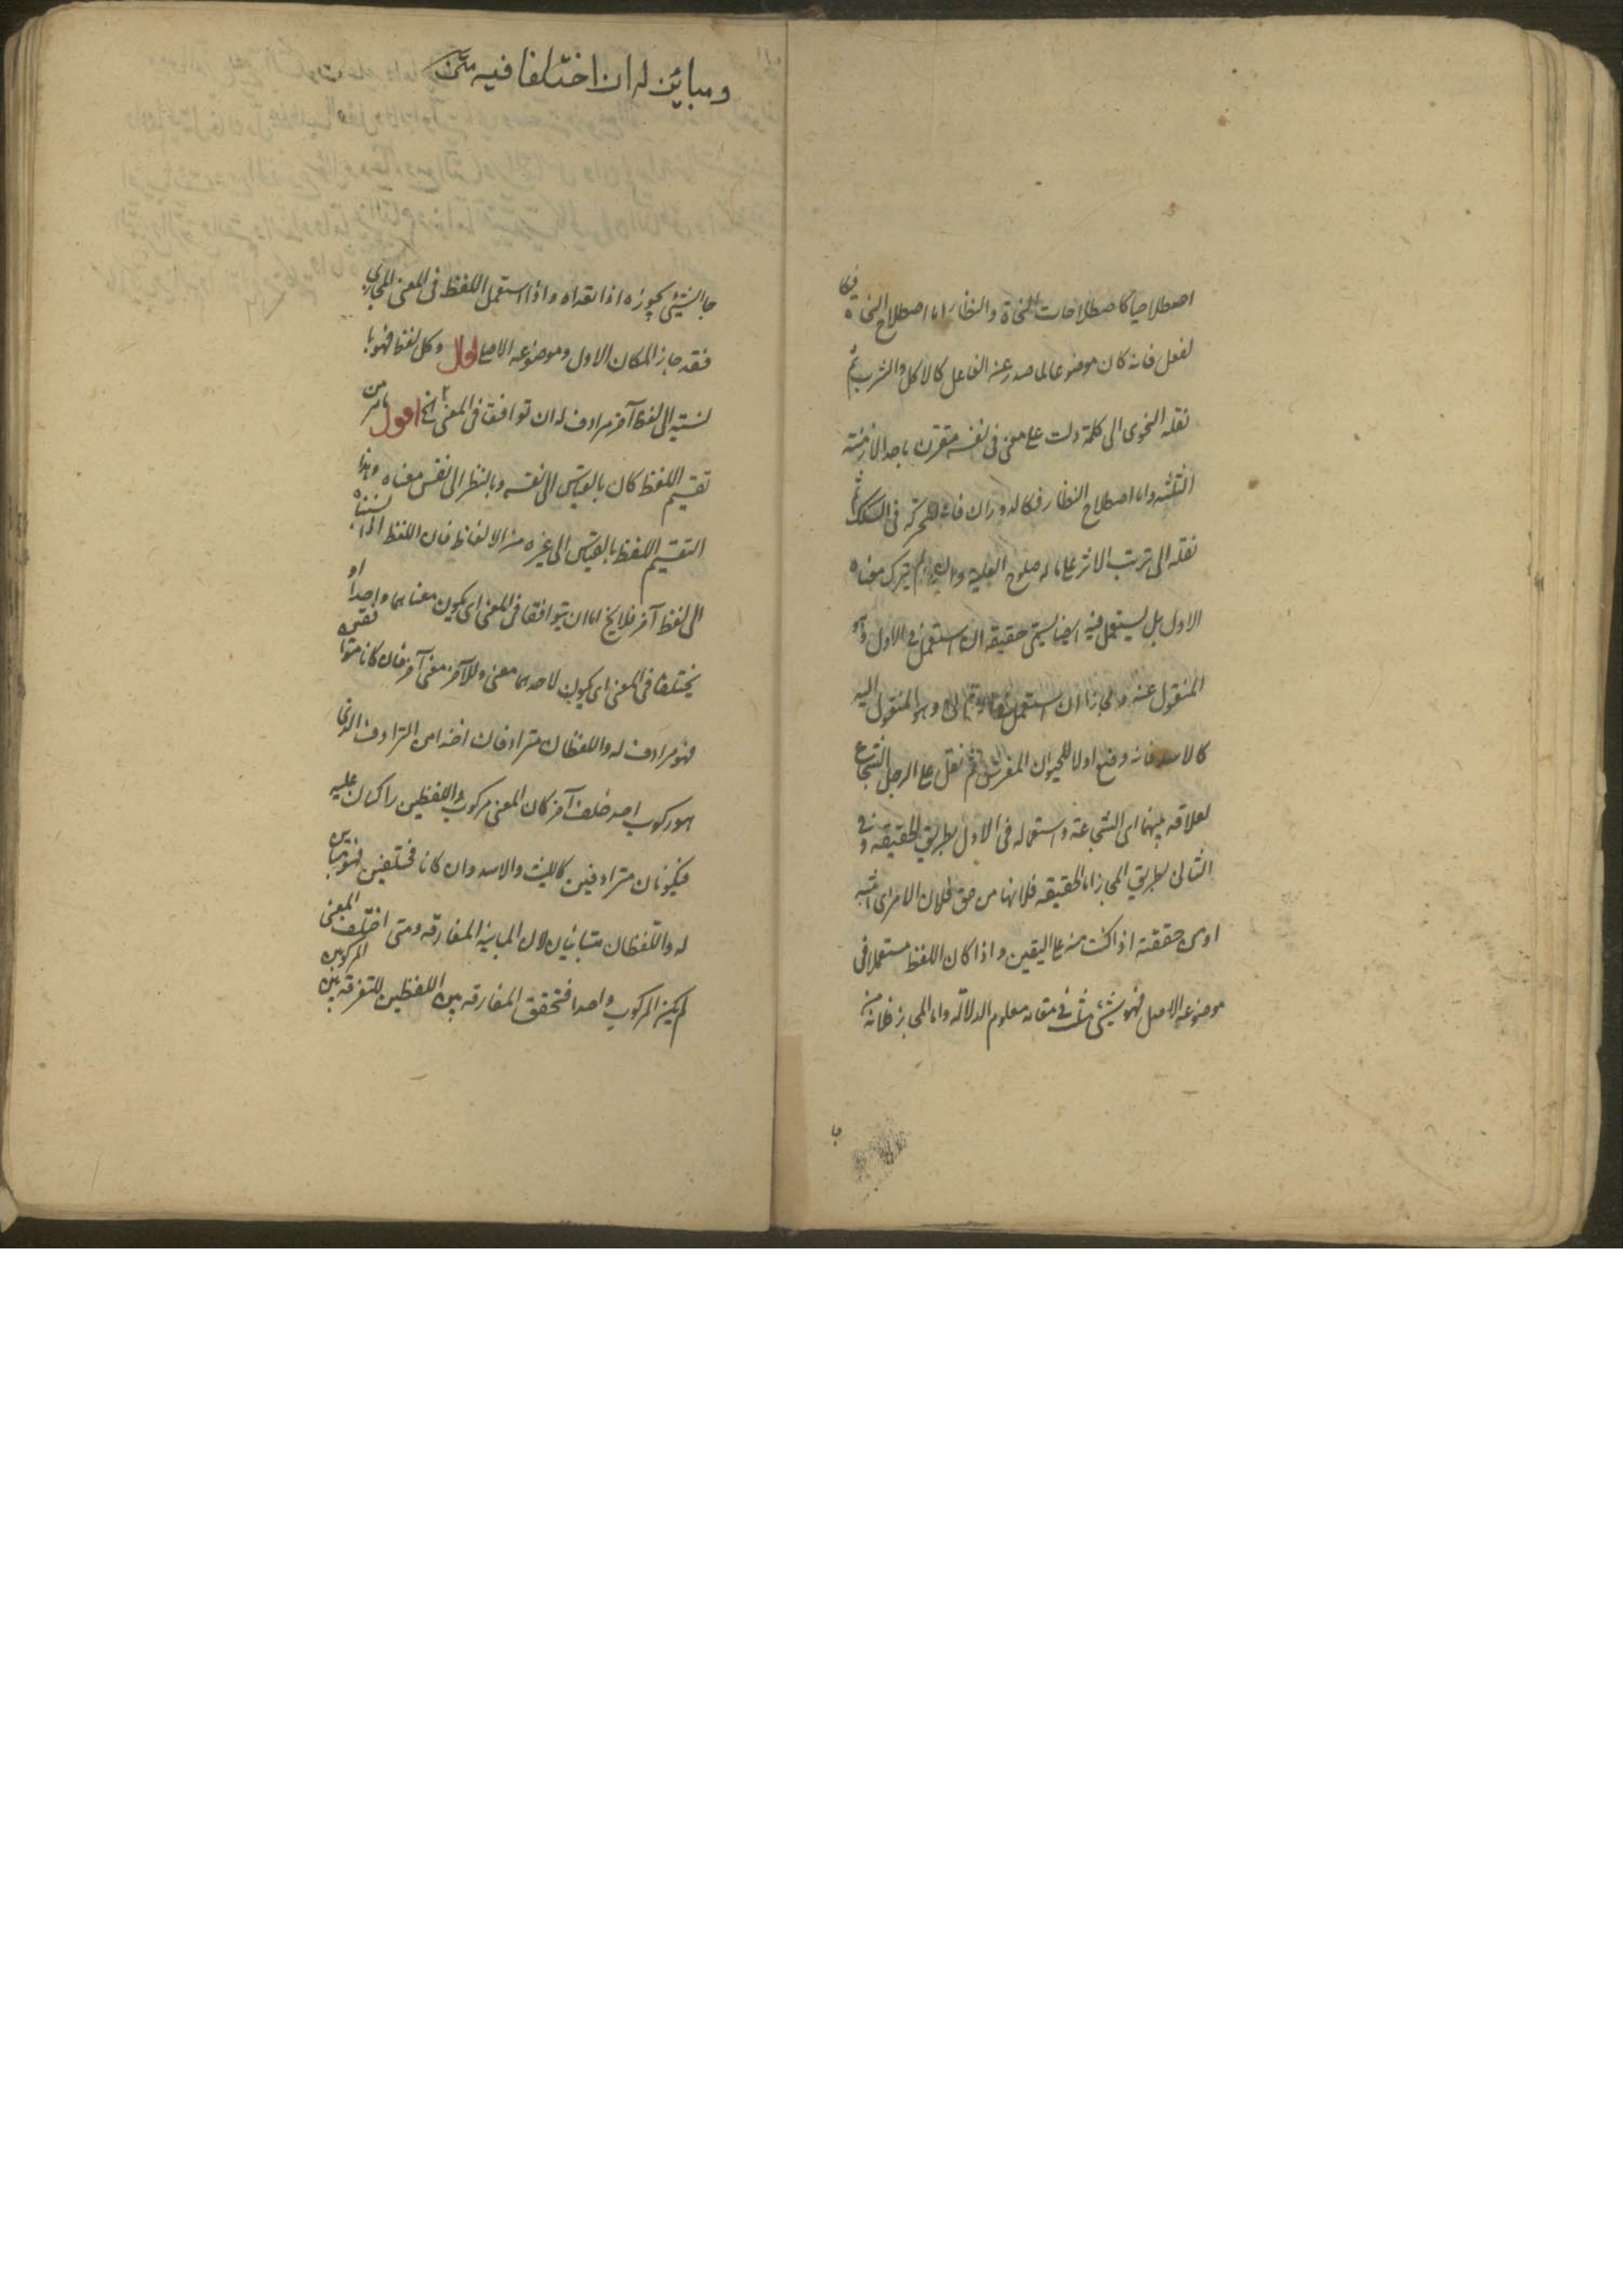 اصطلاحيا كاصطلاحات النحاة والنظار اما اصطلاح النحاة فكا
لفعل فانه كان موضوعا لما صدر عنه الفاعل كالاكل والشرب ثم
نقله النحوى الى كلمة دلت على معنى فى نفسه مقترن باحد الازمنة
الثلثه واما اصطلاح النظار فكالدوران فانه للحركة فى السكك ثم
نقله الى ترتب الاثر على ما له صلوح العلية وان لم يترك معناه
الاول بل يستعمل فيه ايضا يسمى حقيقه ان استعمل فى الاول وهو
المنقول عنه ومجازا ان استعمل فى الثانى وهو المنقول اليه
كالاسد فانه وضع اولا للحيوان المفترس ثم نقل على الرجل الشجاع
لعلاقه بينهما اى الشجاعة واستعماله فى الاول بطريق الحقيقه وفى
الثانى بطريق المجاز اما الحقيقه فلانها من حق فلان الامر اى اثبته
او من حققته اذا كنت منه على اليقين واذا كان اللفظ مستعملا فى
موضوعه الاصل فهو شئ مثبت فى مقامه معلوم الدلالة واما المجاز فلانه من
ومباين له ان اختلفا فيه متن
جاز الشئ يجوزه اذا تعداه واذا استعمل اللفظ فى المعنى المجازى
فقد جاز المكان الاول وموضوعه الاصلى قال وكل لفظ فهو با
لنسبة الى لفظ آخر مرادف له ان توافقا فى المعنى الخ اقول ما مر من
تقسيم اللفظ كان بالقياس الى نفسه وبالنظر الى نفس معناه وهذا
التقسيم اللفظ بالقياس الى غيره من الالفاظ فان اللفظ اذا نسبناه
الى لفظ آخر فلا يخ اما ان يتوافقا فى المعنى اى يكون معناهما واحدا او
يختلفا فى المعنى اى يكون لاحدهما معنى وللآخر معنى آخر فان كانا متوافقين
فهو مرادف له واللفظان مترادفان اخذا من الترادف الذى
هو ركوب احد خلف آخر كان المعنى مركوب واللفظين راكبان عليه
فيكونان مترادفين كالليث والاسد وان كانا مختلفين فهو مباين
له واللفظان متباينان لان المباينة المفارقه ومتى اختلف المعنى
لم يكن المركوب واحدا فتحقق المفارقه بين اللفظين للتفرقه بين المركوبين